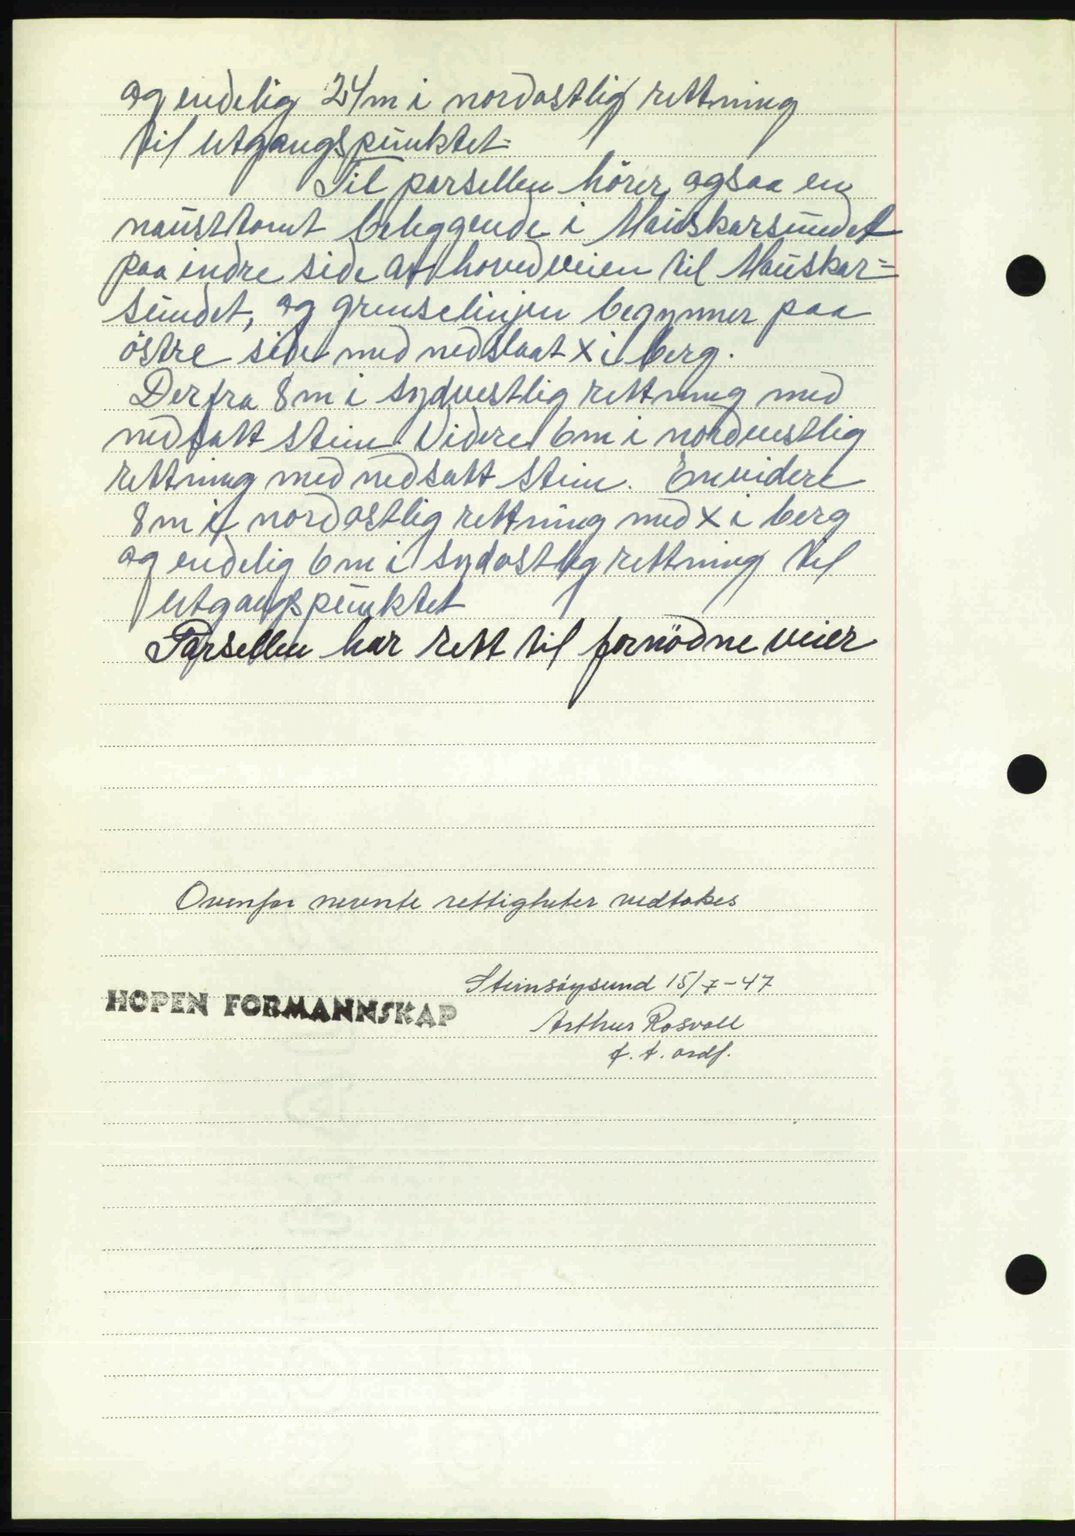 og endelig 24 m i nordostlig rettning
til utgangspunktet.
Til parsellen hörer ogsaa en
nausttomt beliggende i Mauskarsundet
paa indre side av hovedveien til Mauskar=
sundet, og grenselinjen begynner paa
östre side med nedslaat x i berg.
Derfra 8 m i sydvestlig rettning med
nedsatt stein. Videre 6 m i nordvestlig
rettning med nedsatt stein. Envidere
8 m i nordostlig rettning med x i berg
og endelig 6 m i sydostlig rettning til
utgangspunktet
Parsellen har rett til fornödne veier
Ovenfor nevnte rettigheter vedtokes
Steinsöysund 15/7-47
HOPEN FORMANNSKAP
Arthur Rosvoll
f. t. ordf.